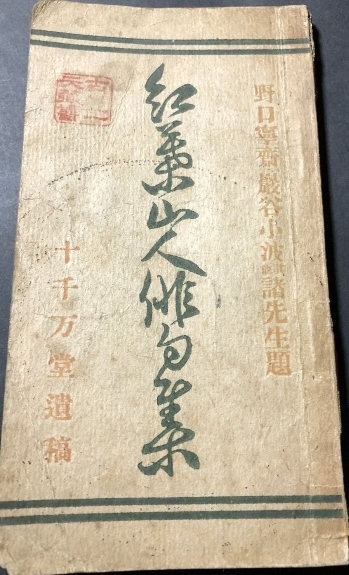 野口寧齋巖谷小波其他諸先生題
紅葉山人俳句集
十千万堂遺稿